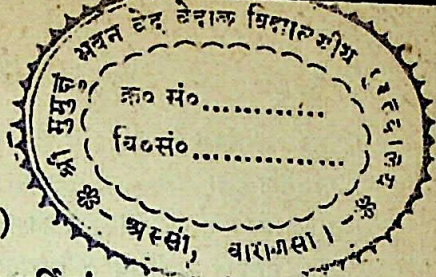 श्री मुमुक्षु भवन वेद वेदाङ्ग विद्यालयीय
क्र० सं०............
वि०सं०...............
अस्सी, वाराणसी।
)